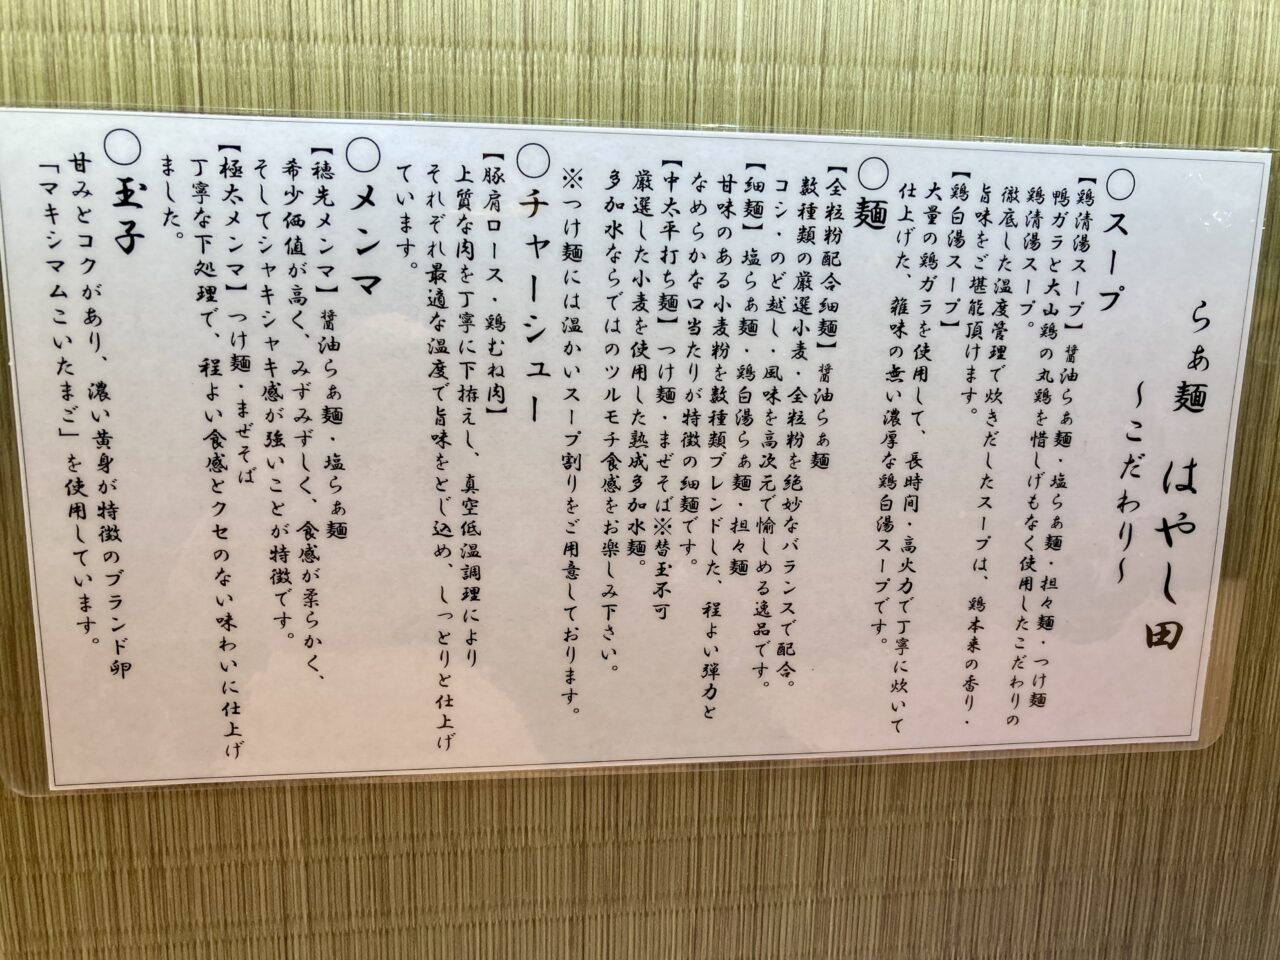 らぁ麺 はやし田
～こだわり～
○スープ
【鶏清湯スープ】醤油らぁ麺・塩らぁ麺・担々麺・つけ麺
鴨ガラと大山鶏の丸鶏を惜しげもなく使用したこだわりの
鶏清湯スープ。
徹底した温度管理で炊きだしたスープは、鶏本来の香り・
旨味をご堪能頂けます。
【鶏白湯スープ】
大量の鶏ガラを使用して、長時間・高火力で丁寧に炊いて
仕上げた、雑味の無い濃厚な鶏白湯スープです。
○麺
【全粒粉配合細麺】醤油らぁ麺
数種類の厳選小麦・全粒粉を絶妙なバランスで配合。
コシ・のど越し・風味を高次元で愉しめる逸品です。
【細麺】塩らぁ麺・鶏白湯らぁ麺・担々麺
甘味のある小麦粉を数種類ブレンドした、程よい弾力と
なめらかな口当たりが特徴の細麺です。
【中太平打ち麺】つけ麺・まぜそば※替玉不可
厳選した小麦を使用した熟成多加水麺。
多加水ならではのツルモチ食感をお楽しみ下さい。
※つけ麺には温かいスープ割りをご用意しております。
○チャーシュー
【豚肩ロース・鶏むね肉】
上質な肉を丁寧に下拵えし、真空低温調理により
それぞれ最適な温度で旨味をとじ込め、しっとりと仕上げ
ています。
○メンマ
【穂先メンマ】醤油らぁ麺・塩らぁ麺
希少価値が高く、みずみずしく、食感が柔らかく、
そしてシャキシャキ感が強いことが特徴です。
【極太メンマ】つけ麺・まぜそば
丁寧な下処理で、程よい食感とクセのない味わいに仕上げ
ました。
○玉子
甘みとコクがあり、濃い黄身が特徴のブランド卵
「マキシマムこいたまご」を使用しています。